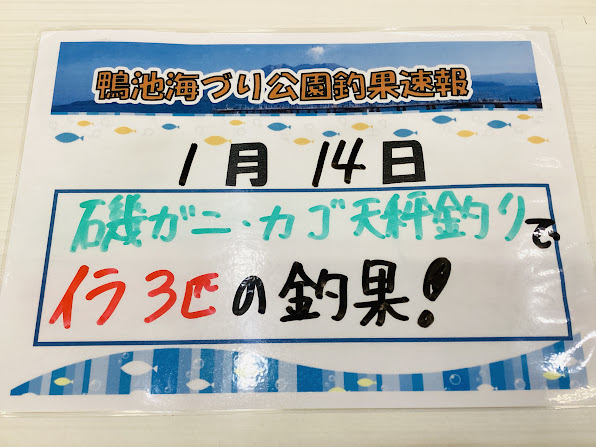 鴨池海づり公園釣果速報
1月14日
磯ガニ・カゴ天秤釣りで
イラ3匹の釣果!